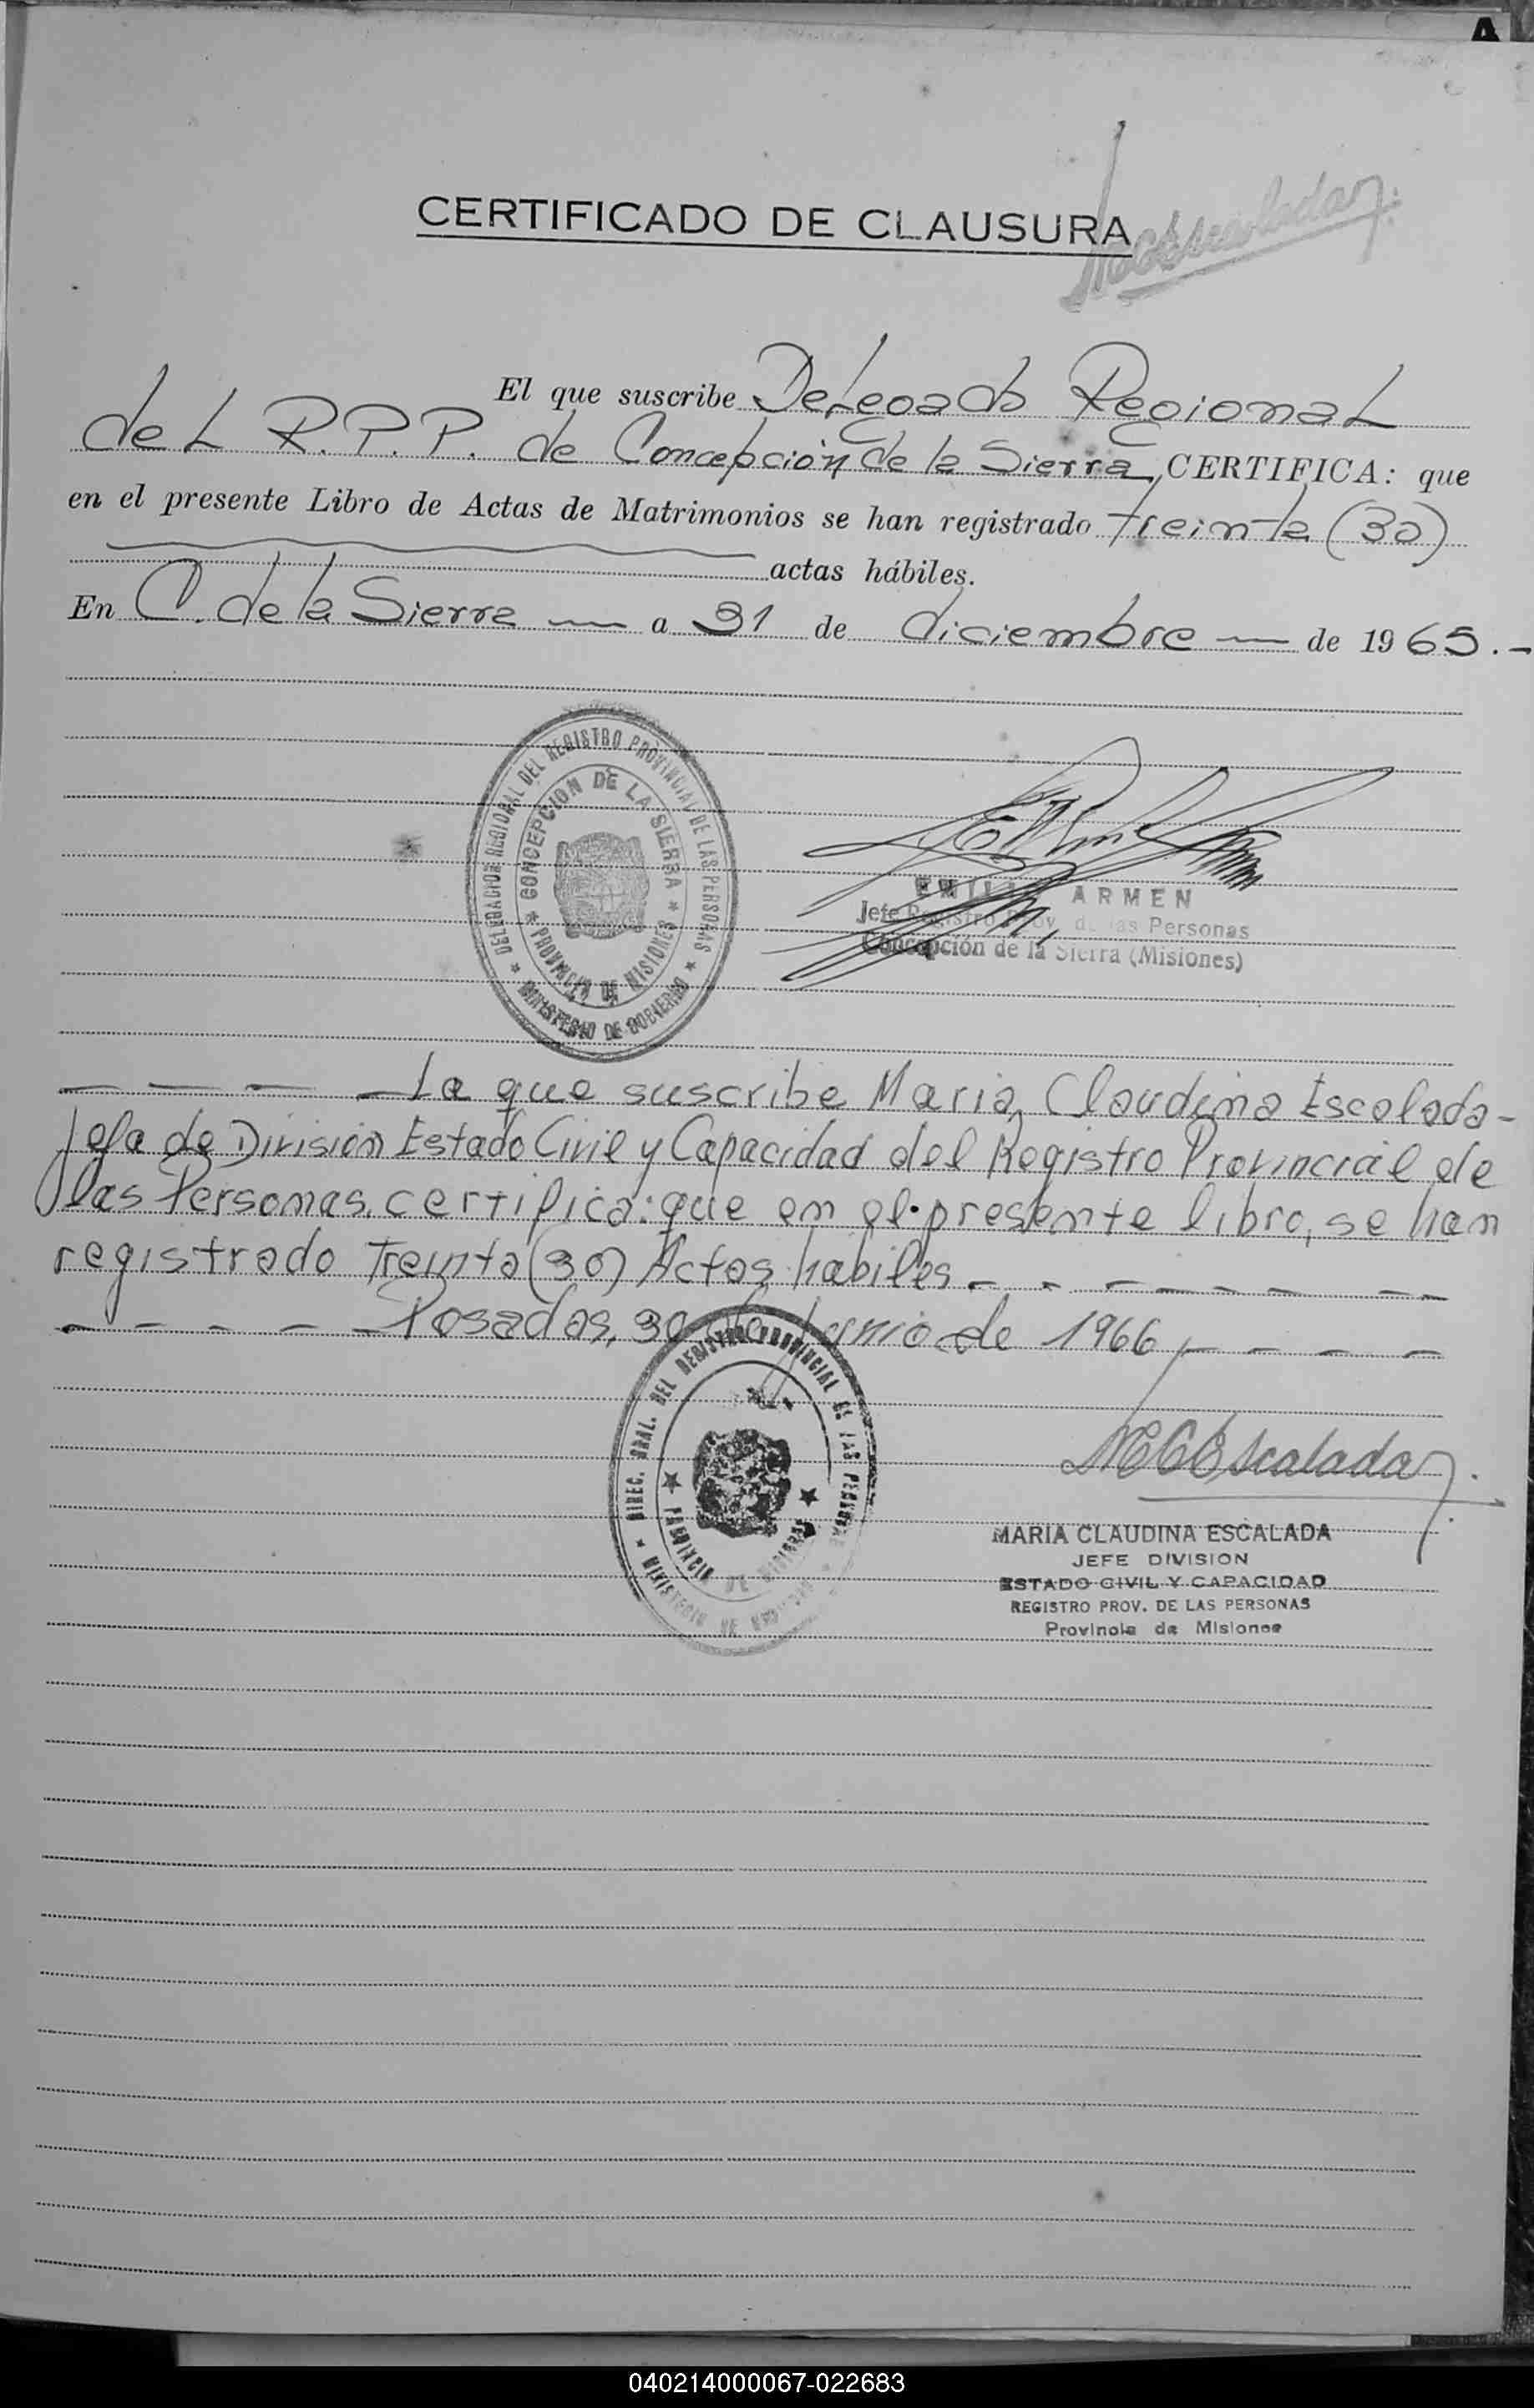 A
CERTIFICADO DE CLAUSURA
El que suscribe Delegado Regional
del R.P.P. de Concepción de la Sierra, CERTIFICA: que
en el presente Libro de Actas de Matrimonios se han registrado treinta (30)
actas hábiles.
En C. de la Sierra — a 31 de diciembre — de 1965.-
DELEGACION REGIONAL DEL REGISTRO PROVINCIAL DE LAS PERSONAS
★ CONCEPCION DE LA SIERRA ★
PROVINCIA DE MISIONES
★ MINISTERIO DE GOBIERNO ★
ARMEN
Jefe Registro Prov. de las Personas
Concepción de la Sierra (Misiones)
— — — — La que suscribe Maria Claudina Escalada-
Jefa de División Estado Civil y Capacidad del Registro Provincial de
las Personas, certifica: que en el presente libro, se han
registrado Treinta (30) Actas hábiles - - - - - - -
- - - - - Posadas, 30 de Junio de 1966, - - - -
DIREC. GRAL. DEL REGISTRO PROVINCIAL DE LAS PERSONAS
★ PROVINCIA DE MISIONES ★
MINISTERIO DE
MCEscalada
MARIA CLAUDINA ESCALADA
JEFE DIVISION
ESTADO CIVIL Y CAPACIDAD
REGISTRO PROV. DE LAS PERSONAS
Provincia de Misiones
040214000067-022683